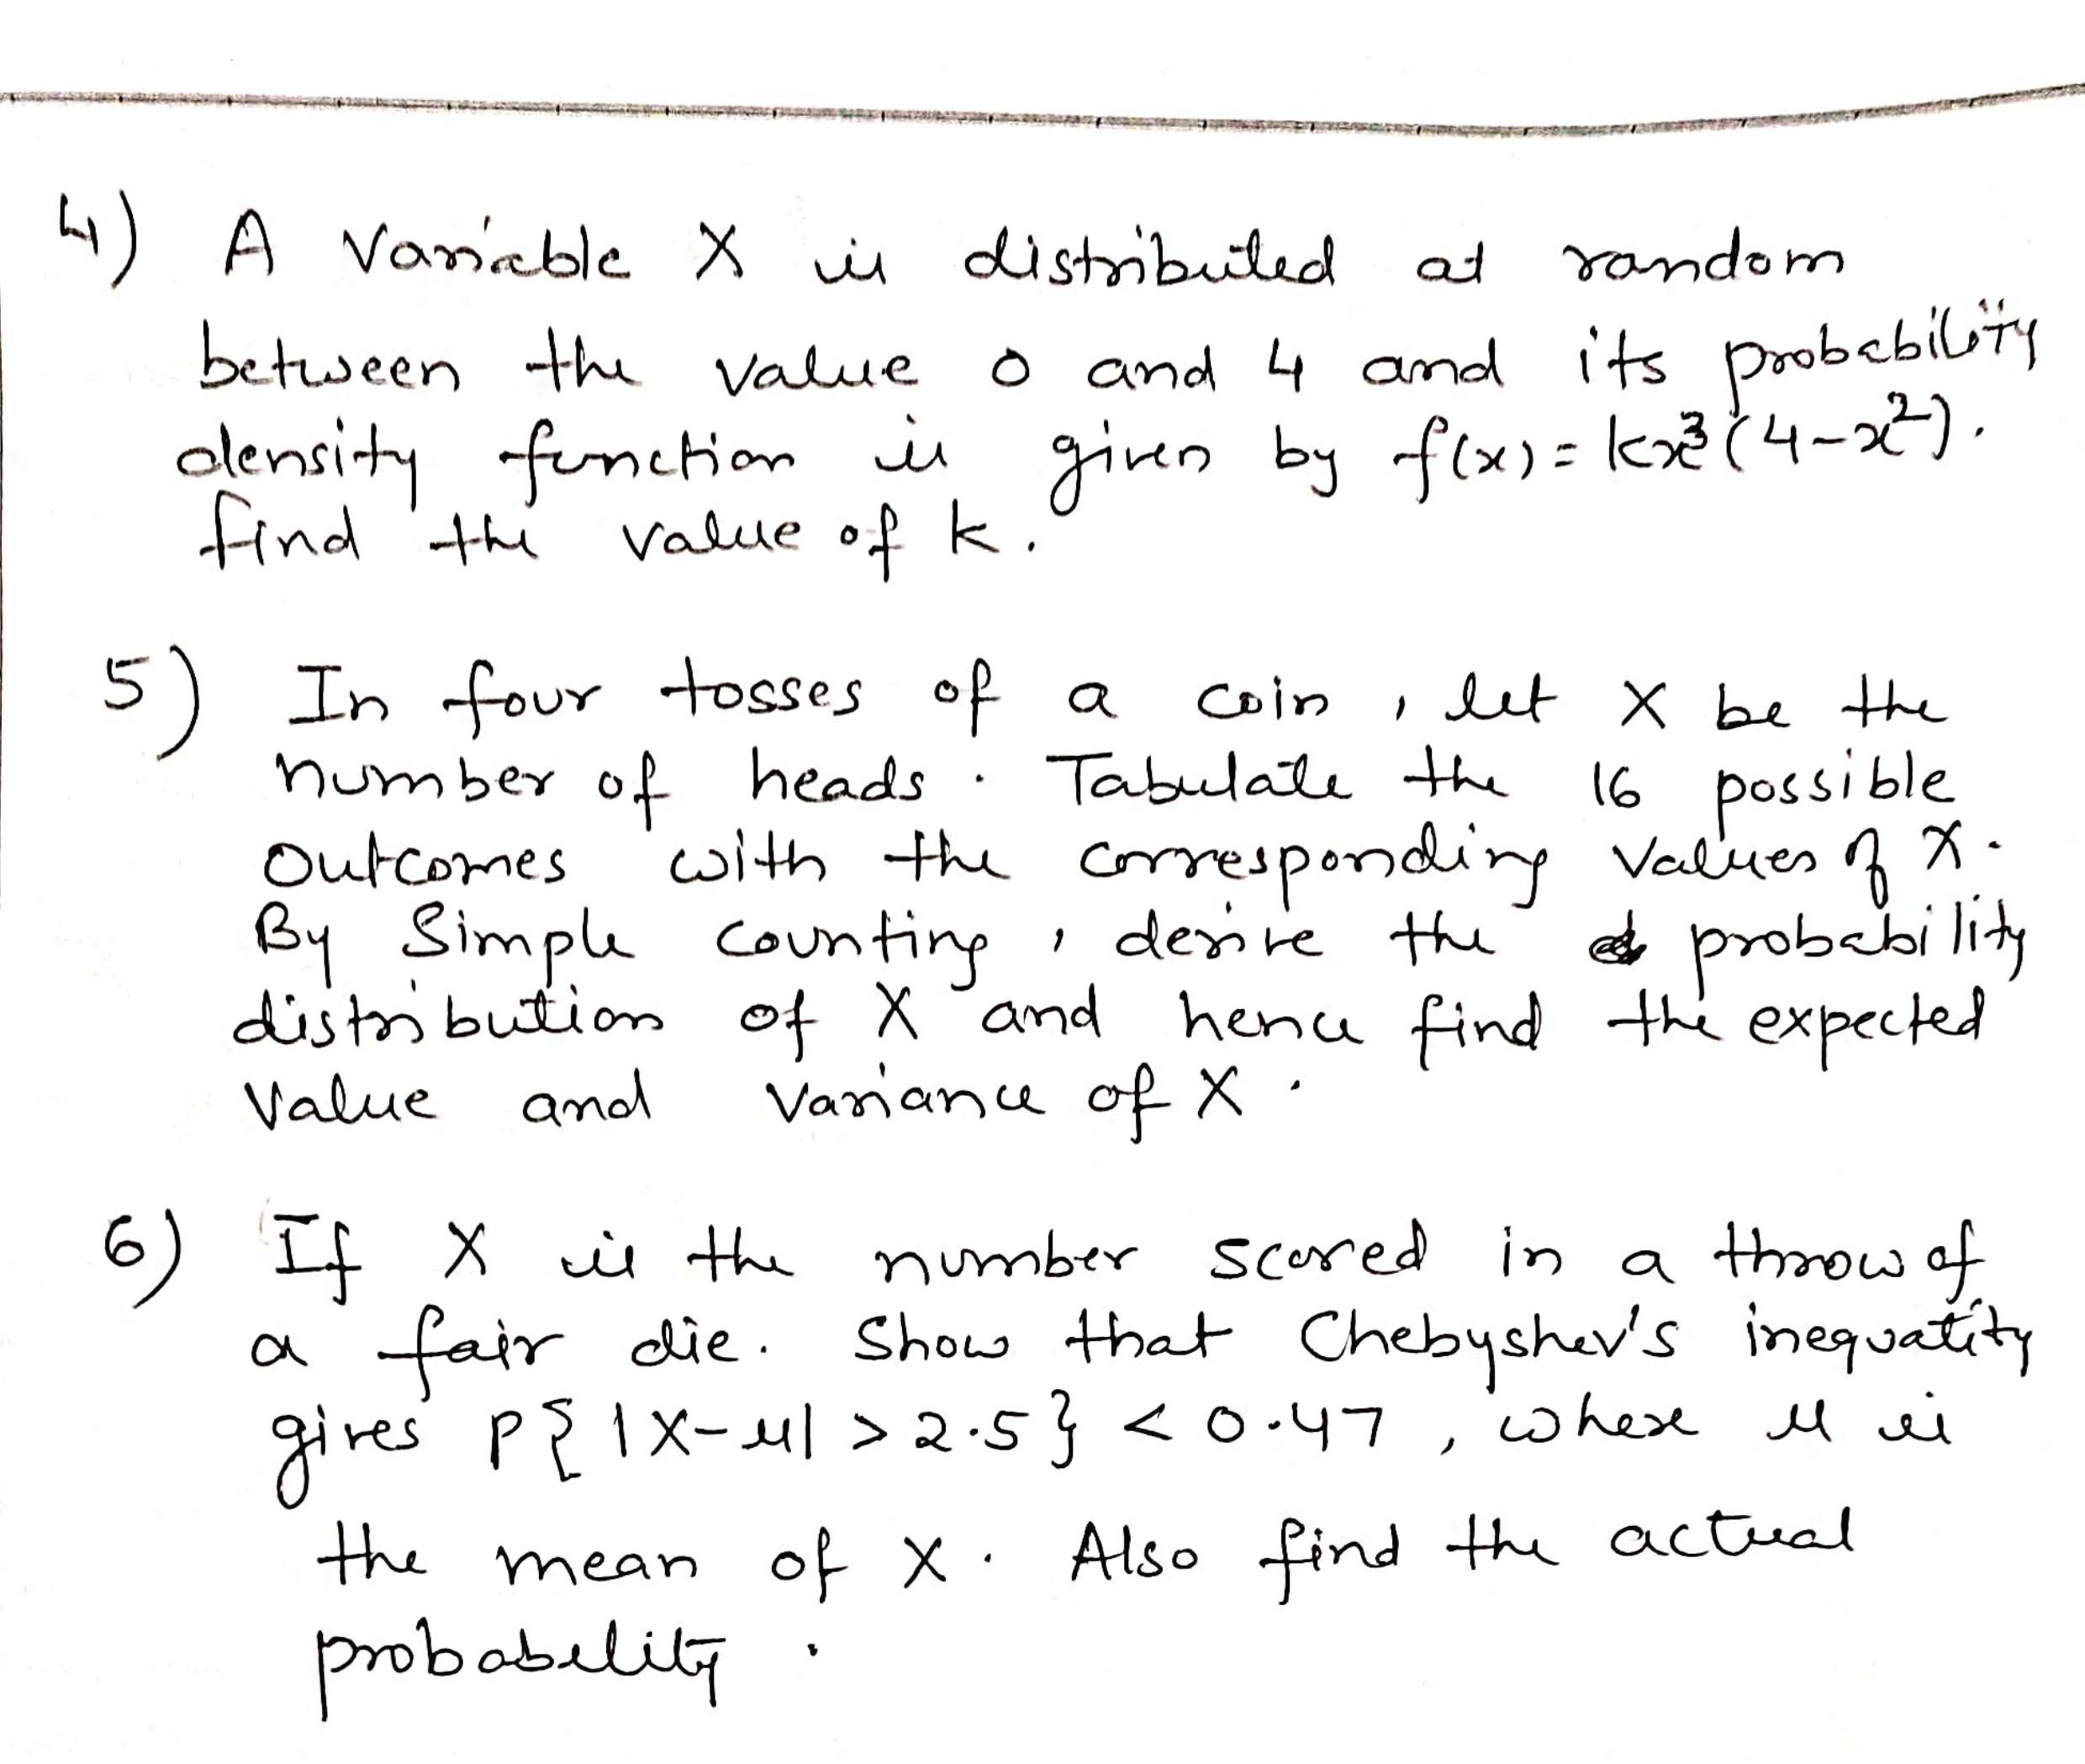 4) A Variable X is distributed at random
between the value 0 and 4 and its probability
density function is given by f(x) = kx³(4-x²).
find the value of k.
5) In four tosses of a coin, let X be the
number of heads. Tabulate the 16 possible
Outcomes with the corresponding values of X.
By Simple counting, derive the probability
distribution of X and hence find the expected
Value and Variance of X.
6) If X is the number scored in a throw of
a fair die. Show that Chebyshev's inequatity
gives P{|X-μ| > 2.5} < 0.47, where μ is
the mean of X. Also find the actual
probabelity.